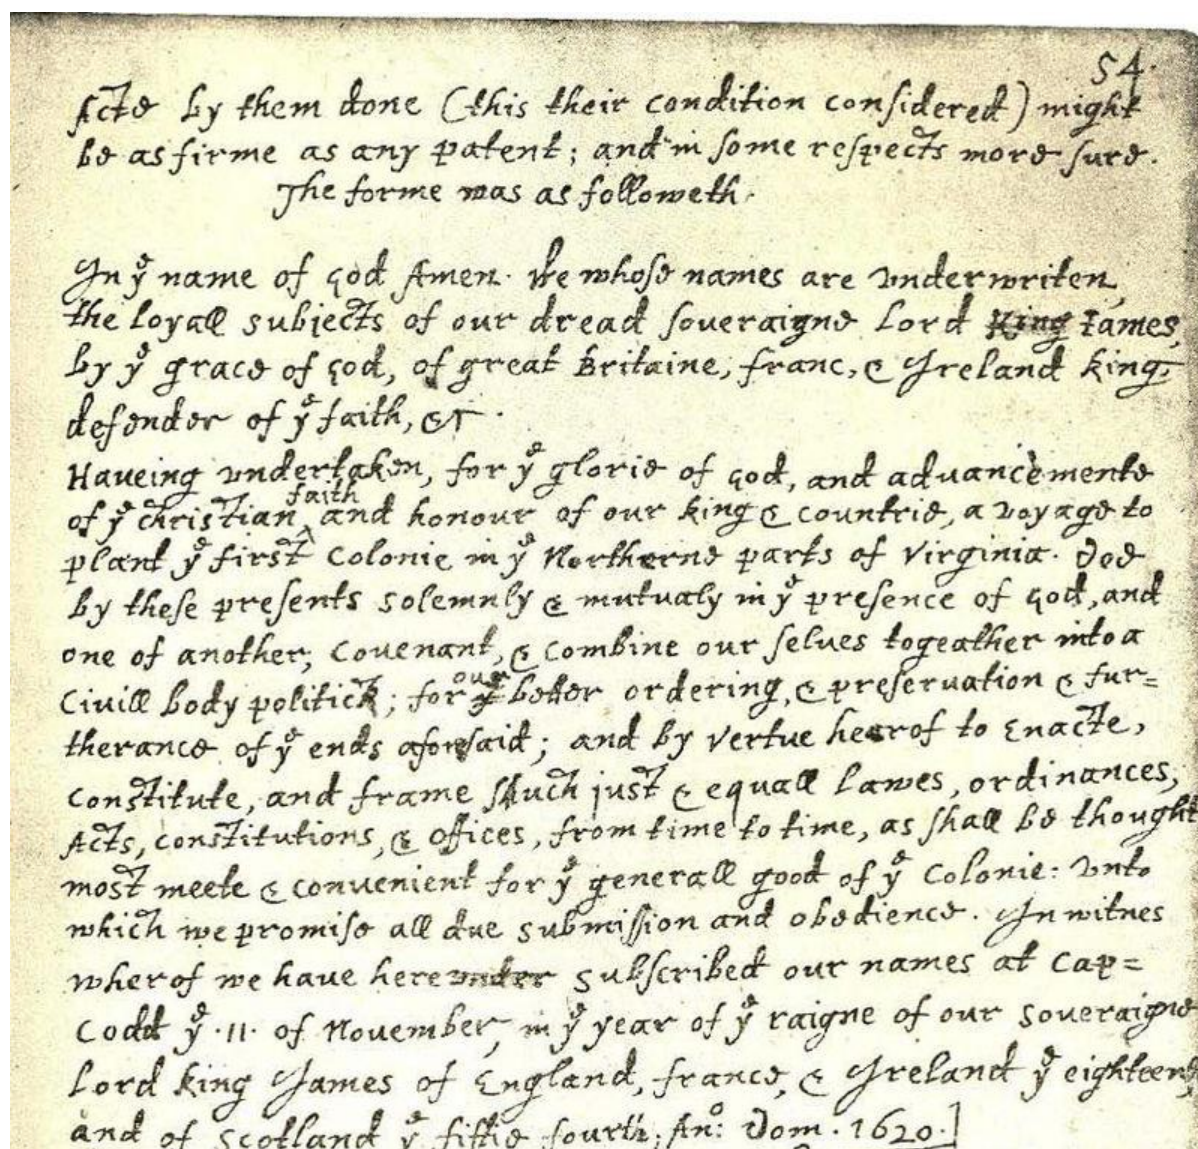 54.
Acts by them done (this their condition considered) might
be as firme as any patent; and in some respects more sure.
The forme was as followeth.
In yᵉ name of God Amen. We whose names are underwriten,
the loyall subjects of our dread soveraigne Lord King James,
by yᵉ grace of God, of great Britaine, franc, & Ireland king,
defender of yᵉ faith, &c.
Haveing undertaken, for yᵉ glorie of God, and advancemente
of yᵉ christian faith and honour of our king & countrie, a voyage to
plant yᵉ first colonie in yᵉ Northerne parts of Virginia. Doe
by these presents solemnly & mutualy in yᵉ presence of God, and
one of another, covenant, & combine our selves togeather into a
civill body politick; for our better ordering, & preservation & fur=
therance of yᵉ ends aforesaid; and by vertue hearof to enacte,
constitute, and frame shuch just & equall lawes, ordinances,
Acts, constitutions, & offices, from time to time, as shall be thought
most meete & convenient for yᵉ generall good of yᵉ Colonie: unto
which we promise all due submission and obedience. In witnes
wherof we have hereunder subscribed our names at Cap=
Codd yᵉ .11. of November, in yᵉ year of yᵉ raigne of our soveraigne
Lord king James of England, france, & Ireland yᵉ eighteenth
and of Scotland yᵉ fiftie fourth, Anº: Dom. 1620.]